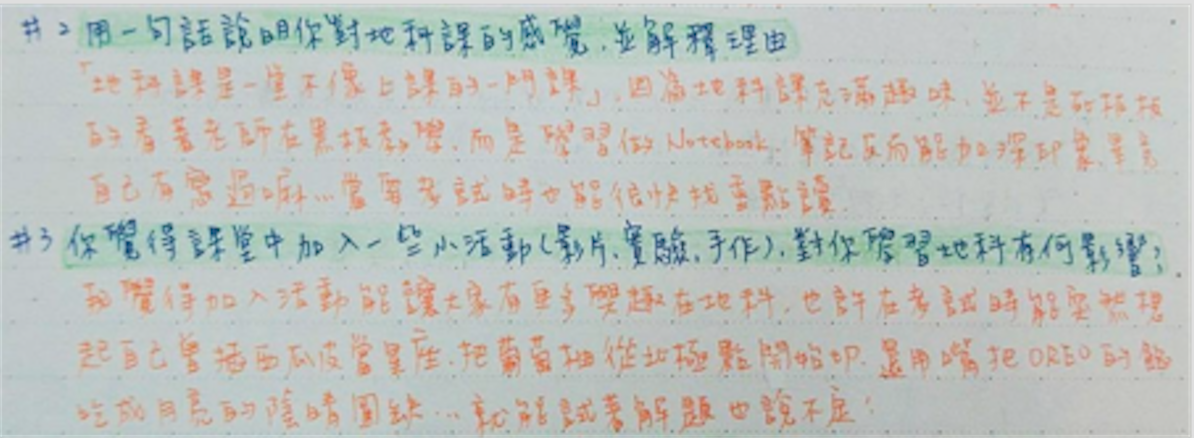 #2 用一句話說明你對地科課的感覺,並解釋理由
「地科課是一堂不像上課的一門課」,因為地科課充滿趣味,並不是死板板
的看著老師在黑板教學,而是學習做Notebook,筆記反而能加深印象,畢竟
自己有寫過嘛...當要考試時也能很快找重點讀
#3 你覺得課堂中加入一些小活動(影片、實驗、手作),對你學習地科有何影響?
我覺得加入活動能讓大家有更多興趣在地科,也許在考試時能突然想
起自己曾插西瓜皮當星座,把葡萄柚從北極點開始切,還用嘴把OREO的餡
吃成月亮的陰晴圓缺...就能試著解題也說不定!